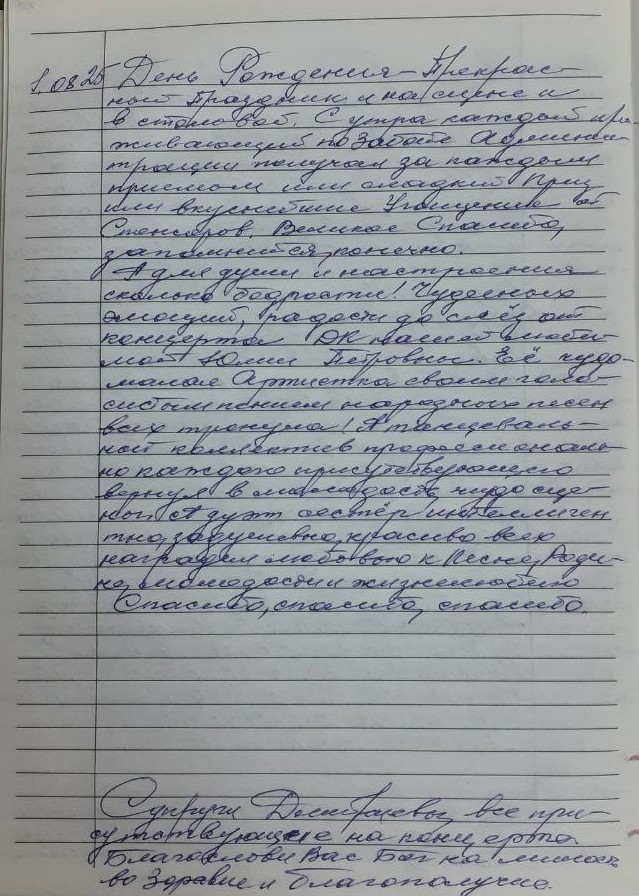 1.08.25 День Рождения – Прекрас-
ный Праздник и на сцене и
в столовой. С утра каждый про-
живающий по Заботе Админис-
трации получал за каждым
приемом или сладкий Приз
или вкуснейшие Угощение от
Спонсоров. Великое Спасибо,
запомнится, конечно.
А для души и настроения
сколько бодрости! Чудесных
эмоций, радости до слёз от
концерта ДК нашей люби-
мой Юлии Петровны. Её чудо-
малая Артистка своим голо-
систым пением народных песен
всех тронула! А танцеваль-
ный коллектив профессиональ-
но каждого присутствующего
вернул в молодость, чудо сце-
ной. А дуэт сестёр интеллиген
тно, задушевно, красиво всех
наградил любовью к Песне, Роди-
не, молодости и жизнелюбию
Спасибо, спасибо, спасибо.
Супруги все при-
сутствующие на концерте.
Благослови Вас Бог на милость
во Здравие и Благополучие.